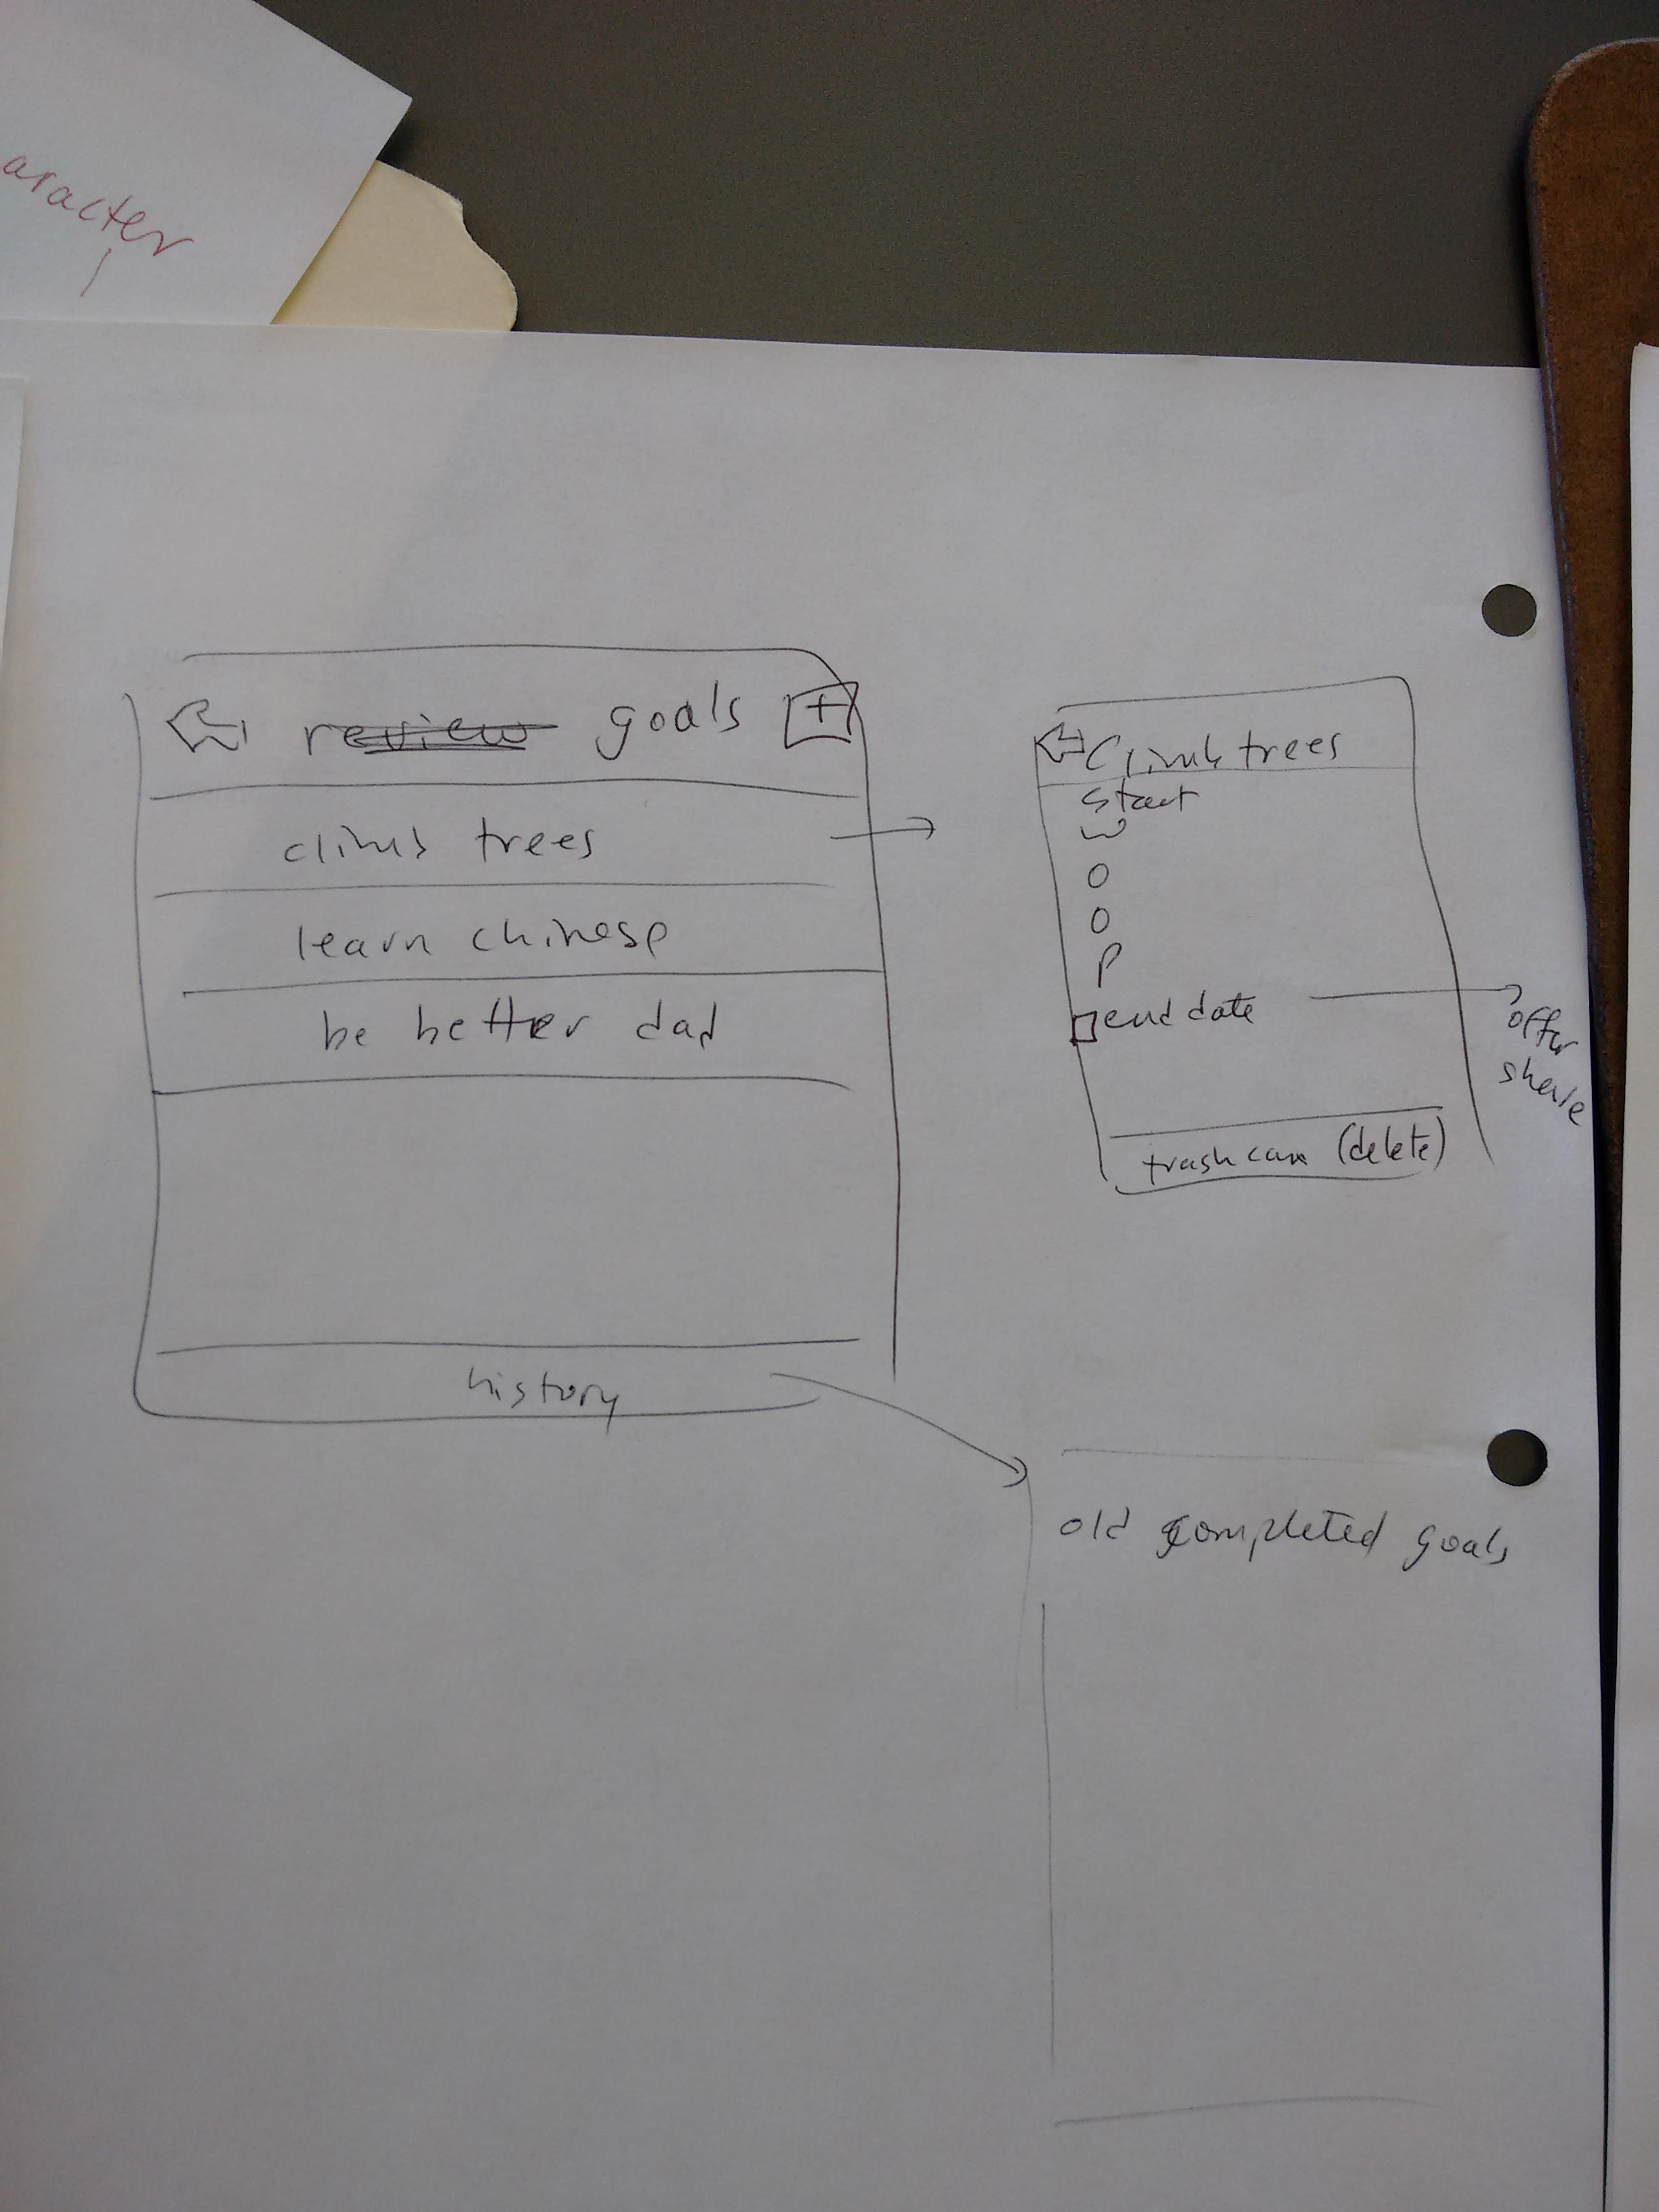 aracter
review goals +
climb trees
learn chinese
be better dad
history
Climb trees
start
W
O
O
P
end date
offer
share
trash can (delete)
old completed goals